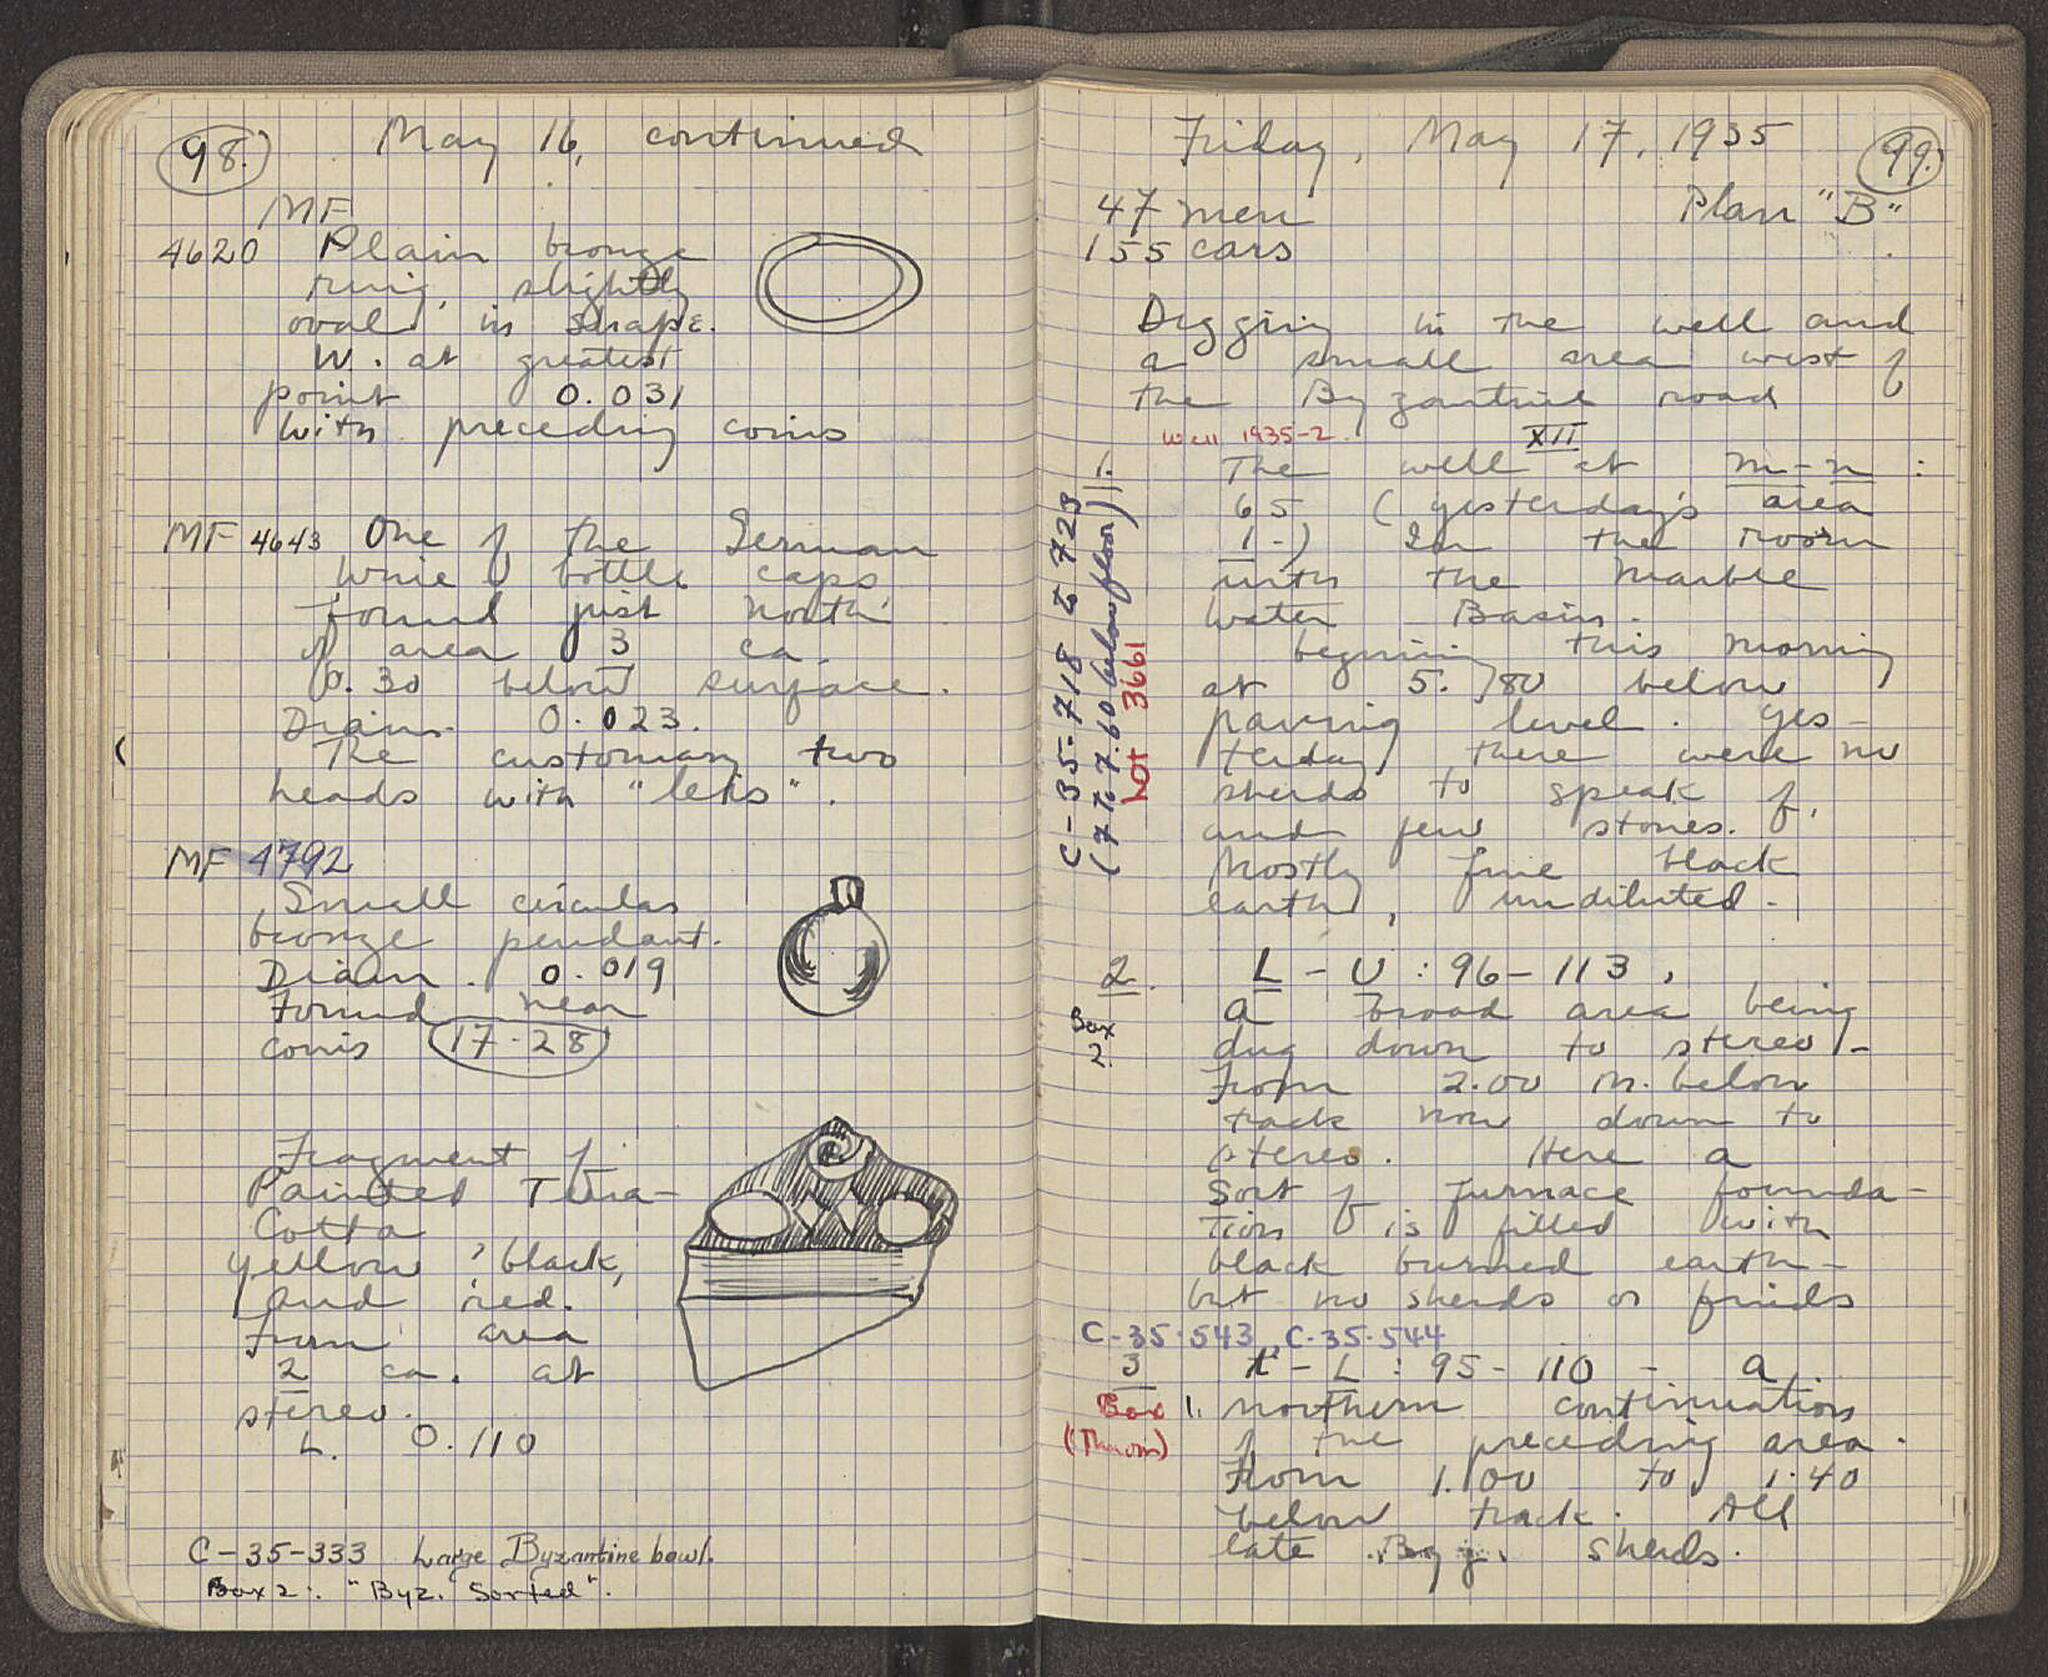 98.
May 16, continued
MF
4620 Plain bronze
ring, slightly
oval in shape.
W. at greatest
point 0.031
with preceding coins
MF 4643 One of the German
wine bottle caps
found just north
of area 3 ca.
0.30 below surface.
Diam. 0.023.
The customary two
heads with "lets".
MF 4792
Small circular
bronze pendant.
Diam. 0.019
Found near
coins 17-28
Fragment of
Painted Terra-
Cotta
yellow, black,
and red.
From area
2 ca. at
stereo.
L. 0.110
C-35-333 Large Byzantine bowl.
Box 2: "Byz. Sorted".
Friday, May 17, 1935
99.
47 men Plan "B"
155 cars
Digging in the well and
a small area west of
the Byzantine road
Well 1935-2. XII
1. The well at m-n:
65 (yesterday's area
1.) In the room
with the marble
water Basin.
beginning this morning
at 5.80 below
paving level. Yes-
terday there were no
sherds to speak of,
and few stones.
Mostly fine black
earth, undiluted.
C-35-718 to 723
(7 to 7.60 below floor)
Lot 3661
2. L-U: 96-113,
Box
2.
a broad area being
dug down to stereo-
From 2.00 m. below
track now down to
stereo. Here a
sort of furnace founda-
tion is filled with
black burned earth-
but no sherds or finds
C-35-543, C-35-544
3 -L: 95-110 - a
Box 1. northern continuation
(Thrown) of the preceding area.
From 1.00 to 1.40
below track. All
late Byz. sherds.